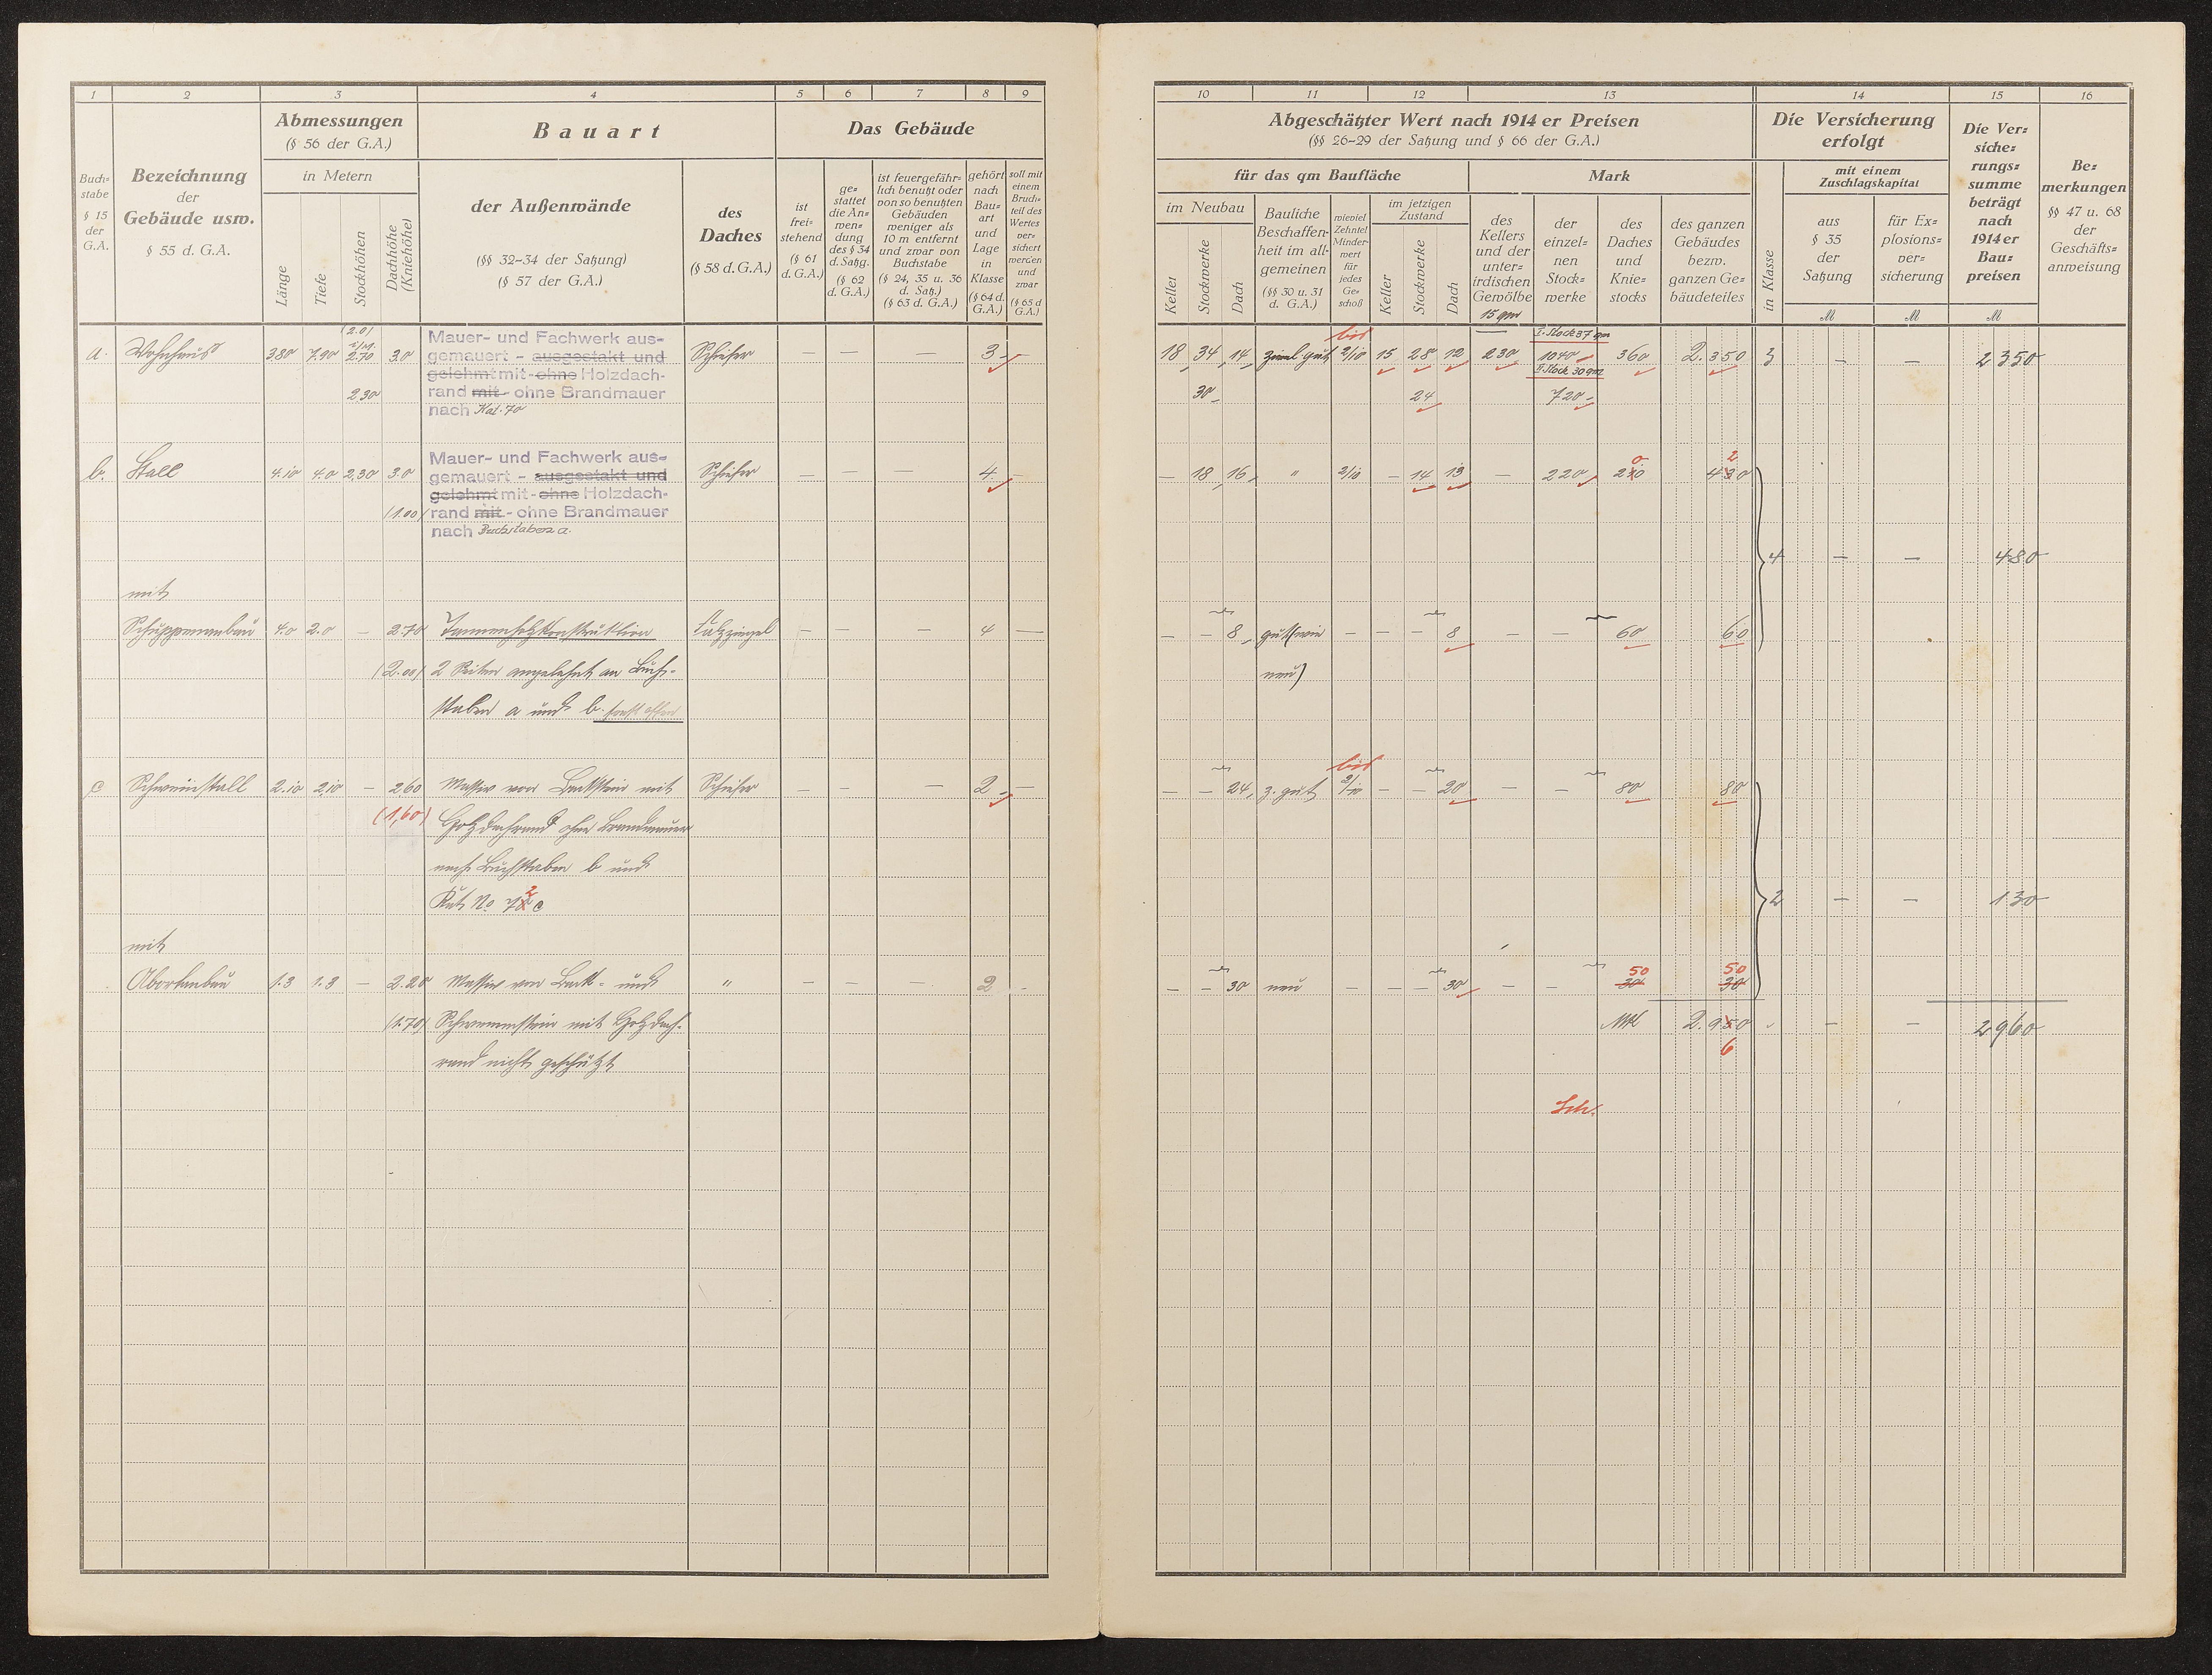 1 2 3 4 5 6 7 8 9
Abmessungen
(§ 56 der G.A.)
Bauart
Das Gebäude
Buch-
stabe
§ 15
der
G.A.
Bezeichnung
der
Gebäude usw.
§ 55 d. G.A.
in Metern
Länge
Tiefe
Stockhöhen
Dachhöhe
(Kniehöhe)
der Außenwände
(§§ 32-34 der Satzung)
(§ 57 der G.A.)
des
Daches
(§ 58 d. G.A.)
ist
frei-
stehend
(§ 61
d. G.A.)
ge-
stattet
die An-
wen-
dung
des § 34
d. Satzg.
(§ 62
d. G.A.)
ist feuergefähr-
lich benutzt oder
von so benutzten
Gebäuden
weniger als
10 m entfernt
und zwar von
Buchstabe
(§ 24, 35 u. 36
d. Satz.)
(§ 63 d. G.A.)
gehört
nach
Bau-
art
und
Lage
in
Klasse
(§ 64 d.
G.A.)
soll mit
einem
Bruch-
teil des
Wertes
ver-
sichert
werden
und
zwar
(§ 65 d
G.A.)
(2.0)
a. Wohnhaus 3.80 7.90 2.70 3.0 Schiefer — — — 3 —
2.30
Mauer- und Fachwerk aus-
gemauert - ausgestakt und
gelehmt mit - ohne Holzdach-
rand mit - ohne Brandmauer
nach Kat. 70
b. Stall 4.10 4.0 2,30 3.0 Schiefer — — — 4 —
(1.00)
Mauer- und Fachwerk aus-
gemauert - ausgestakt und
gelehmt mit - ohne Holzdach-
rand mit - ohne Brandmauer
nach Buchstaben a.
mit
Schuppenanbau 4.0 2.0 — 2.70 Tannenholzkonstruktion Falzziegel — — — 4 —
(2.00) 2 Seiten angelehnt an Buch-
staben a und b. sonst offen
c Schweinstall 2.10 2,10 — 2.60 Massiv von Backstein mit Schiefer — — — 2 —
(1,60) Holzdachrand ohne Brandmauer
nach Buchstaben b und
Kat. No. 72 c
mit
Abortanbau 1.3 1.3 — 2.20 Massiv von Back- und " — — — 2 —
(1.70) Schwemmstein mit Holzdach-
rand nicht geschützt
10 11 12 13 14 15 16
Abgeschätzter Wert nach 1914 er Preisen
(§§ 26-29 der Satzung und § 66 der G.A.)
für das qm Baufläche
Mark
im Neubau
Keller
Stockwerke
Dach
Bauliche
Beschaffen-
heit im all-
gemeinen
(§§ 30 u. 31
d. G.A.)
wieviel
Zehntel
Minder-
wert
für
jedes
Ge-
schoß
im jetzigen
Zustand
Keller
Stockwerke
Dach
des
Kellers
und der
unter-
irdischen
Gewölbe
der
einzel-
nen
Stock-
werke
des
Daches
und
Knie-
stocks
des ganzen
Gebäudes
bezw.
ganzen Ge-
bäudeteiles
Die Versicherung
erfolgt
in Klasse
mit einem
Zuschlagskapital
aus
§ 35
der
Satzung
für Ex-
plosions-
ver-
sicherung
Die Ver-
siche-
rungs-
summe
beträgt
nach
1914er
Bau-
preisen
Be-
merkungen
§§ 47 u. 68
der
Geschäfts-
anweisung
M M M
15 qm
I. Stock 37 qm
bis
18 34 14 gut 2/10 15 28 12 230 1040 360 2.350 3 — — 2350
II. Stock 30 qm
30 24 720
— 18 16 " 2/10 — 14 13 — 220 200 420
4 — — 480
— — 8 gut (wie — — — 8 — — 60 60
neu)
bis
— — 24 z. gut 2/10 — — 20 — — 80 80
2 — — 130
50 50
— — 30 neu — — — 30 — — 30 30
Mk 2.950 — — 2960
6
Sch.